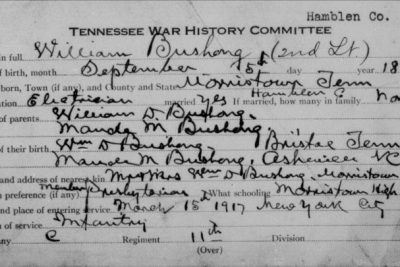 Hamblen Co.
TENNESSEE WAR HISTORY COMMITTEE
in full William Bushong (2nd Lt)
of birth, month September 15th day year 18
born, Town (if any), and County and State Morristown Tenn
Hamblen C
ation Eletrician married Yes If married, how many in family
of parents William D. Bushong.
Manda M Bushong
of their birth Wm D Bushong. Bristol Tenn
Mander M Bushong, Asheville NC
and address of nearest kin Mr & Mrs Wm D Bushong. Morristown
n preference (if any) Member Presbyterian What schooling Morristown High
and place of entering service March 15th 1917 New York City
h of service Infantry
any C Regiment 11th Division
(Over)